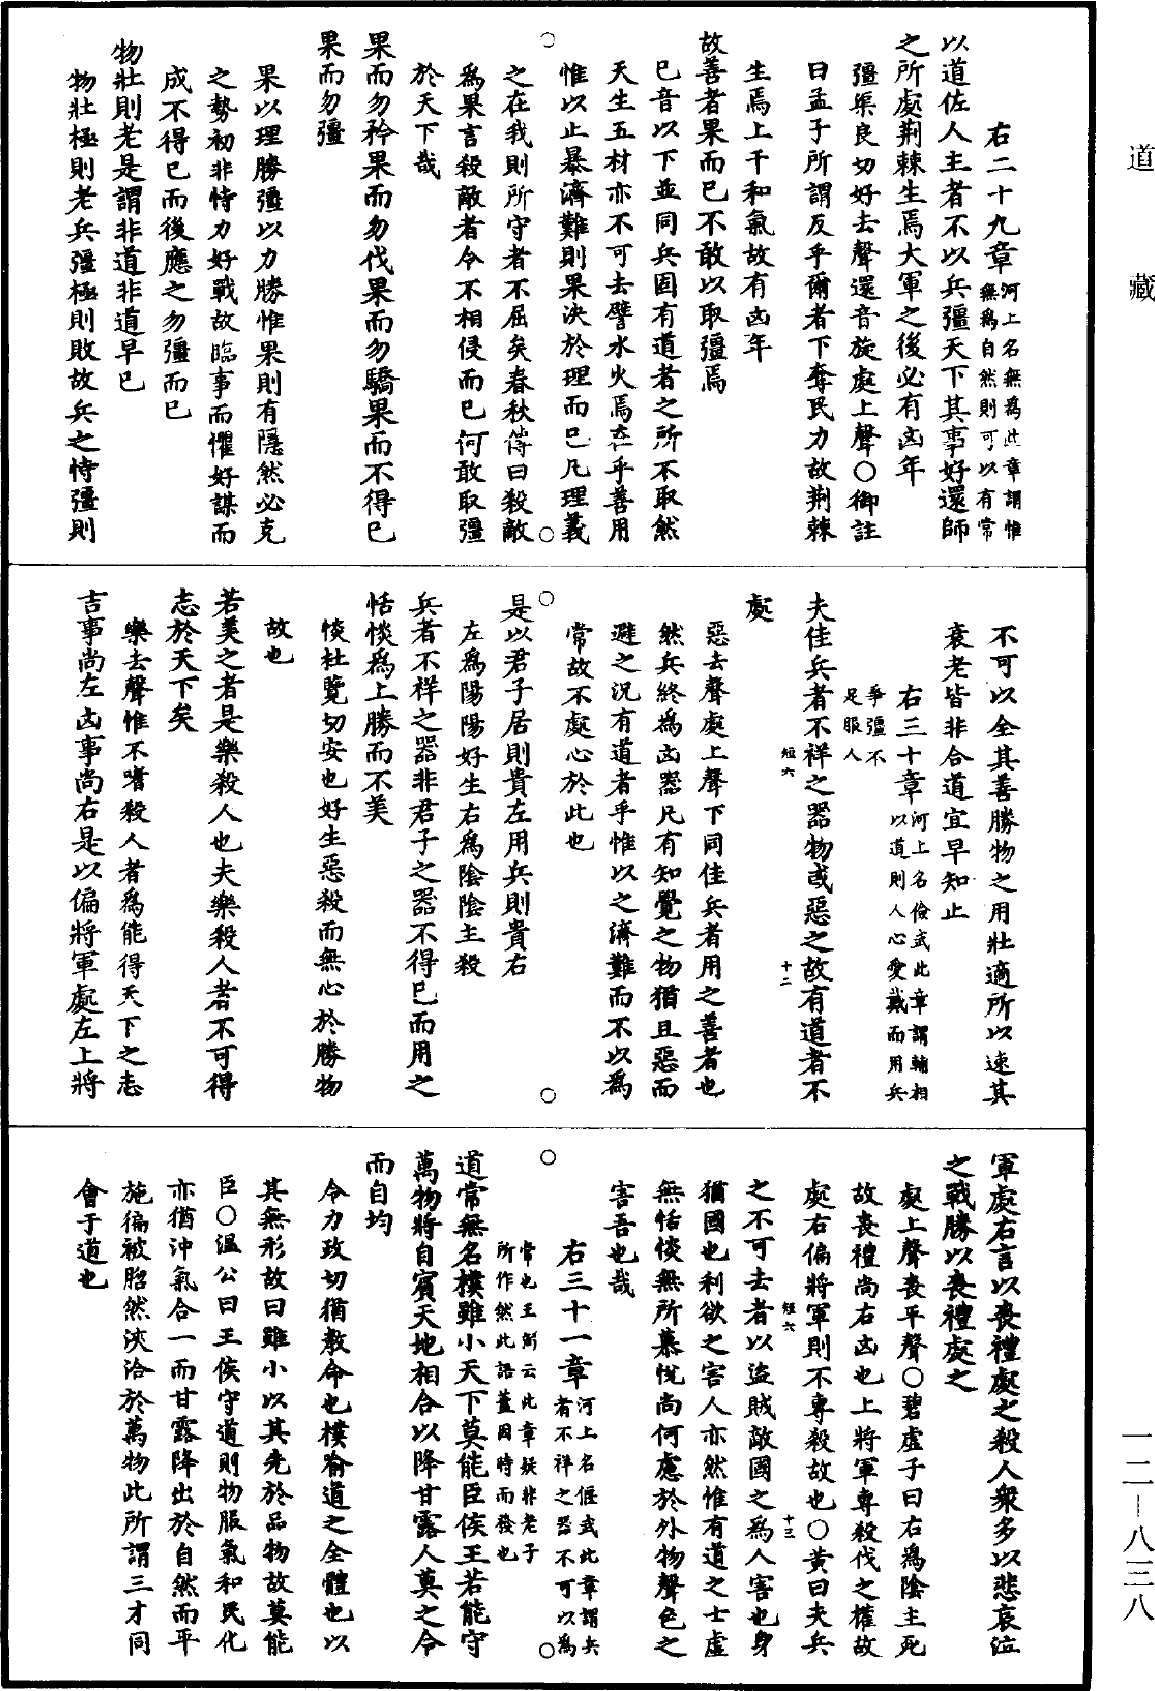 道藏
右二十九章河上名無爲此章謂惟
無爲自然則可以有常
以道佐人主者不以兵彊天下其事好還師
之所處荆棘生焉大軍之後必有凶年
彊渠良切好去聲還音旋處上聲○御註
曰孟子所謂反乎爾者下奪民力故荆棘
生焉上干和氣故有凶年
故善者果而已不敢以取彊焉
已音以下並同兵固有道者之所不取然
天生五材亦不可去譬水火焉在乎善用
惟以止暴濟難則果決於理而已凡理義
之在我則所守者不屈矣春秋傳曰殺敵
爲果言殺敵者令不相侵而已何敢取彊
於天下哉
果而勿矜果而勿伐果而勿驕果而不得已
果而勿彊
果以理勝彊以力勝惟果則有隱然必克
之勢初非恃力好戰故臨事而懼好謀而
成不得已而後應之勿彊而已
物壯則老是謂非道非道早已
物壯極則老兵彊極則敗故兵之恃彊則
不可以全其善勝物之用壯適所以速其
衰老皆非合道宜早知止
右三十章河上名儉武此章謂輔相
以道則人心愛戴而用兵
爭彊不
足服人
夫佳兵者不祥之器物或惡之故有道者不
短六
十二
處
惡去聲處上聲下同佳兵者用之善者也
然兵終爲凶器凡有知覺之物猶且惡而
避之況有道者乎惟以之濟難而不以爲
常故不處心於此也
是以君子居則貴左用兵則貴右
左爲陽陽好生右爲陰陰主殺
兵者不祥之器非君子之器不得已而用之
恬惔爲上勝而不美
惔杜覽切安也好生惡殺而無心於勝物
故也
若美之者是樂殺人也夫樂殺人者不可得
志於天下矣
樂去聲惟不嗜殺人者爲能得天下之志
吉事尚左凶事尚右是以偏將軍處左上將
軍處右言以喪禮處之殺人衆多以悲哀泣
之戰勝以喪禮處之
處上聲喪平聲○碧虚子曰右爲陰主死
故喪禮尚右凶也上將軍專殺伐之權故
處右偏將軍則不專殺故也○黃曰夫兵
短六
十三
之不可去者以盜賊敵國之爲人害也身
猶國也利欲之害人亦然惟有道之士虚
無恬惔無所慕悅尚何慮於外物聲色之
害吾也哉
右三十一章河上名偃武此章謂兵
者不祥之器不可以爲
常也王弼云此章疑非老子
所作然此語蓋因時而發也
道常無名樸雖小天下莫能臣侯王若能守
萬物將自賓天地相合以降甘露人莫之令
而自均
令力政切猶教命也樸喻道之全體也以
其無形故曰雖小以其先於品物故莫能
臣○溫公曰王侯守道則物服氣和民化
亦猶沖氣合一而甘露降出於自然而平
施徧被昭然浹洽於萬物此所謂三才同
會于道也
一二—八三八